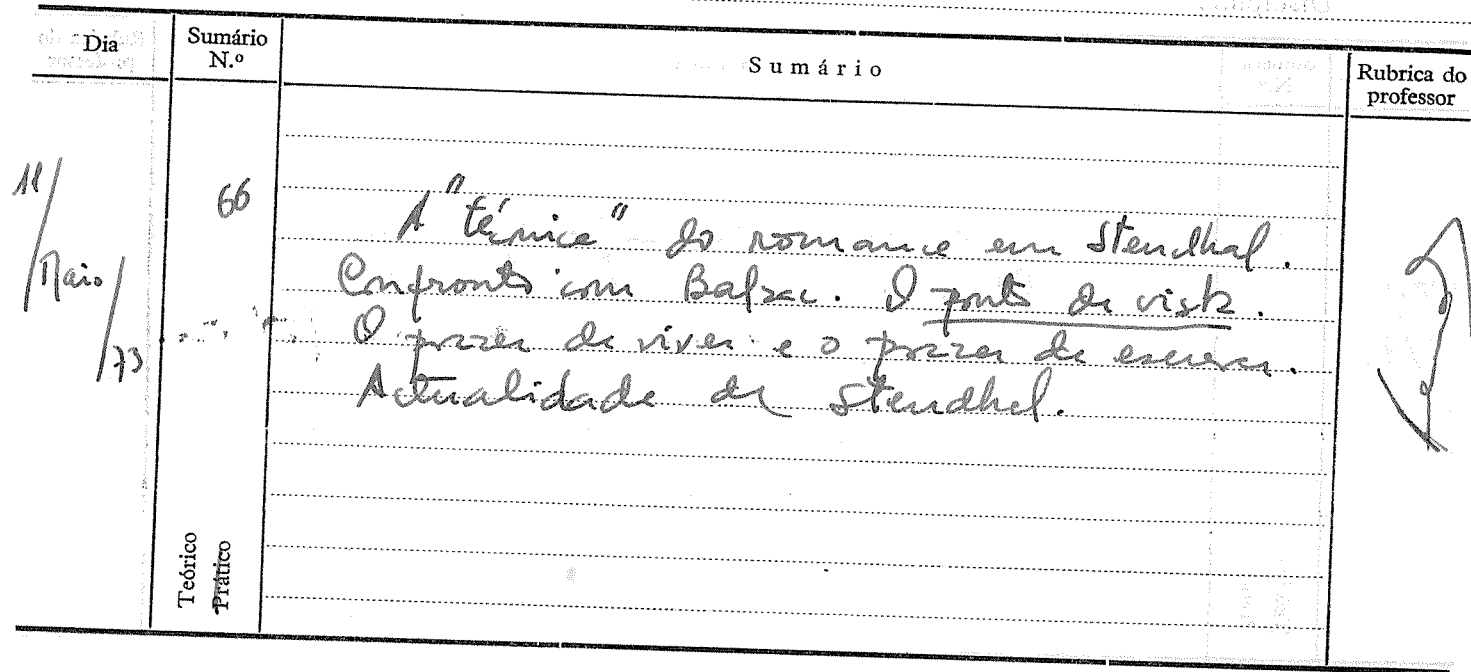 Dia
Sumário
N.º
Sumário
Rubrica do
professor
11/
Maio/
73
66
A "técnica" do romance em Stendhal.
Confronto com Balzac. O ponto de vista.
O prazer de viver e o prazer de escrever.
Actualidade de Stendhal.
Teórico
Prático